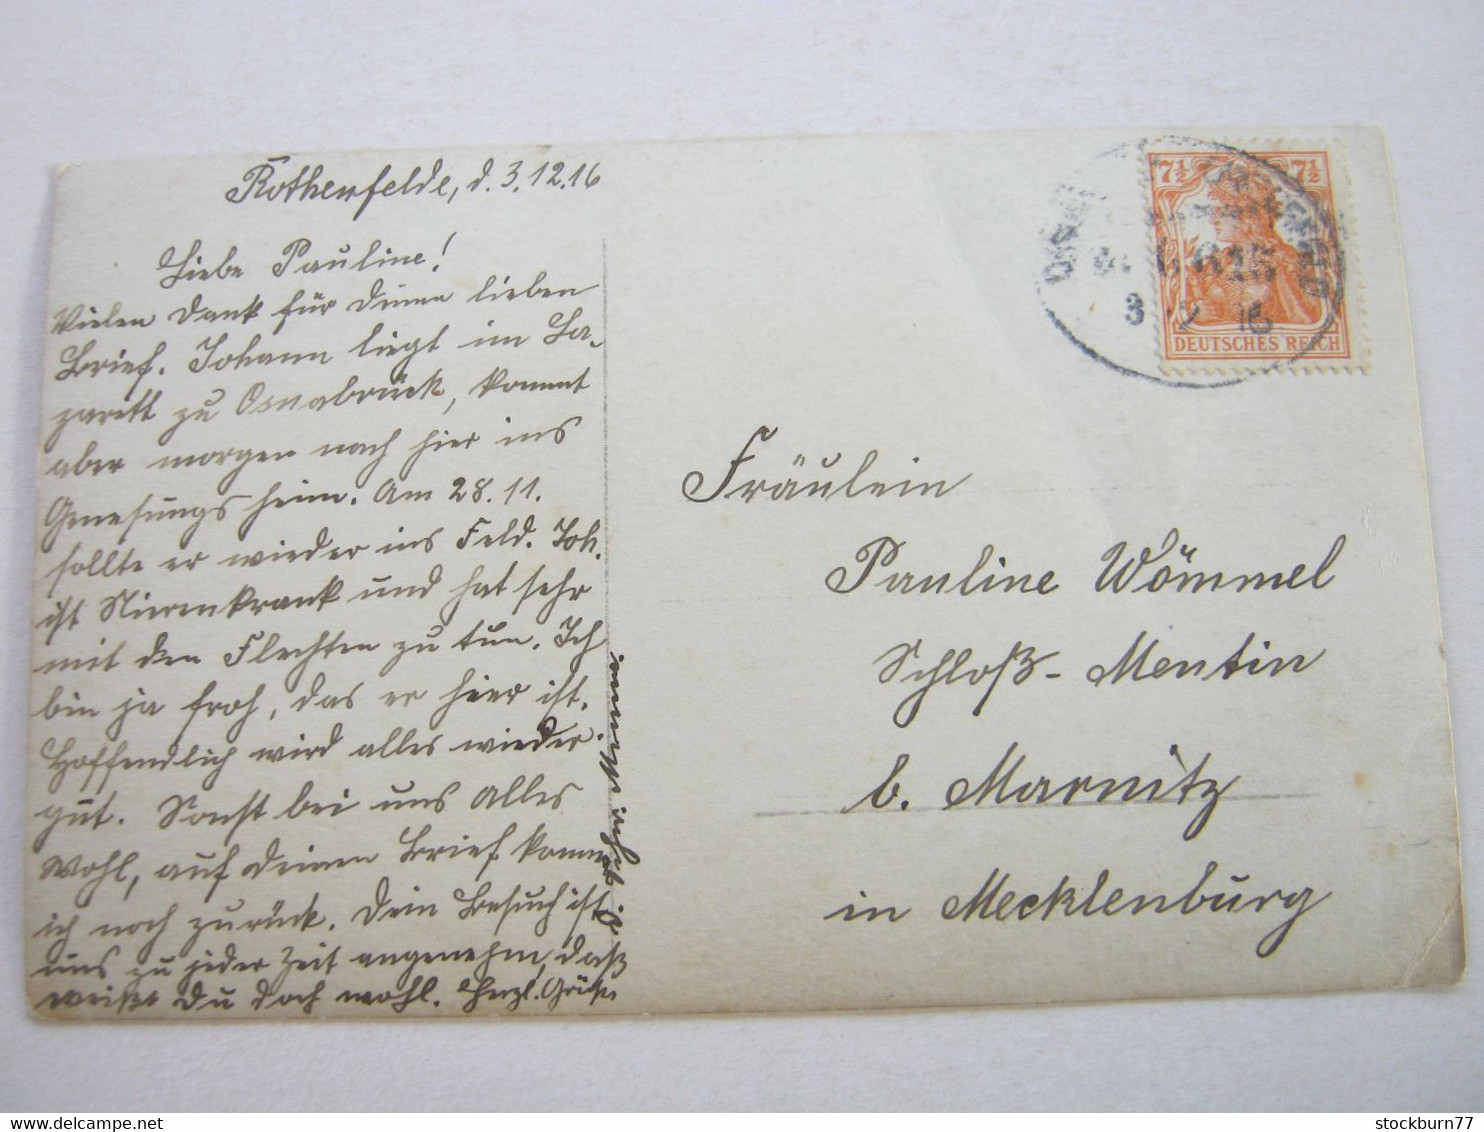 Rothenfelde, d. 3.12.16
Liebe Pauline!
Vielen Dank für Deinen lieben
Brief. Johann liegt im La-
zarett zu Osnabrück, kommt
aber morgen nach hier ins
Genesungsheim. Am 28.11.
sollte er wieder ins Feld. Joh.
ist Nierenkrank und hat sehr
mit den Flechten zu tun. Ich
bin ja froh, das er hier ist.
Hoffendlich wird alles wieder
gut. Sonst bei uns alles
wohl, auf Deinen Brief komme
ich noch zurück. Dein Besuch ist
uns zu jeder Zeit angenehm, daß
weißt Du doch wohl. Herzl. Grüße
7½ 7½
3 12 16
DEUTSCHES REICH
Fräulein
Pauline Wömmel
Schloß-Mentin
b. Marnitz
in Mecklenburg
stockburn77